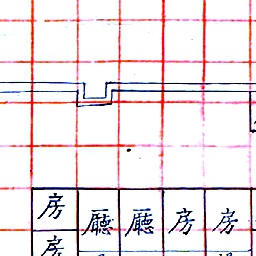 房 廳 廳 房 房
房